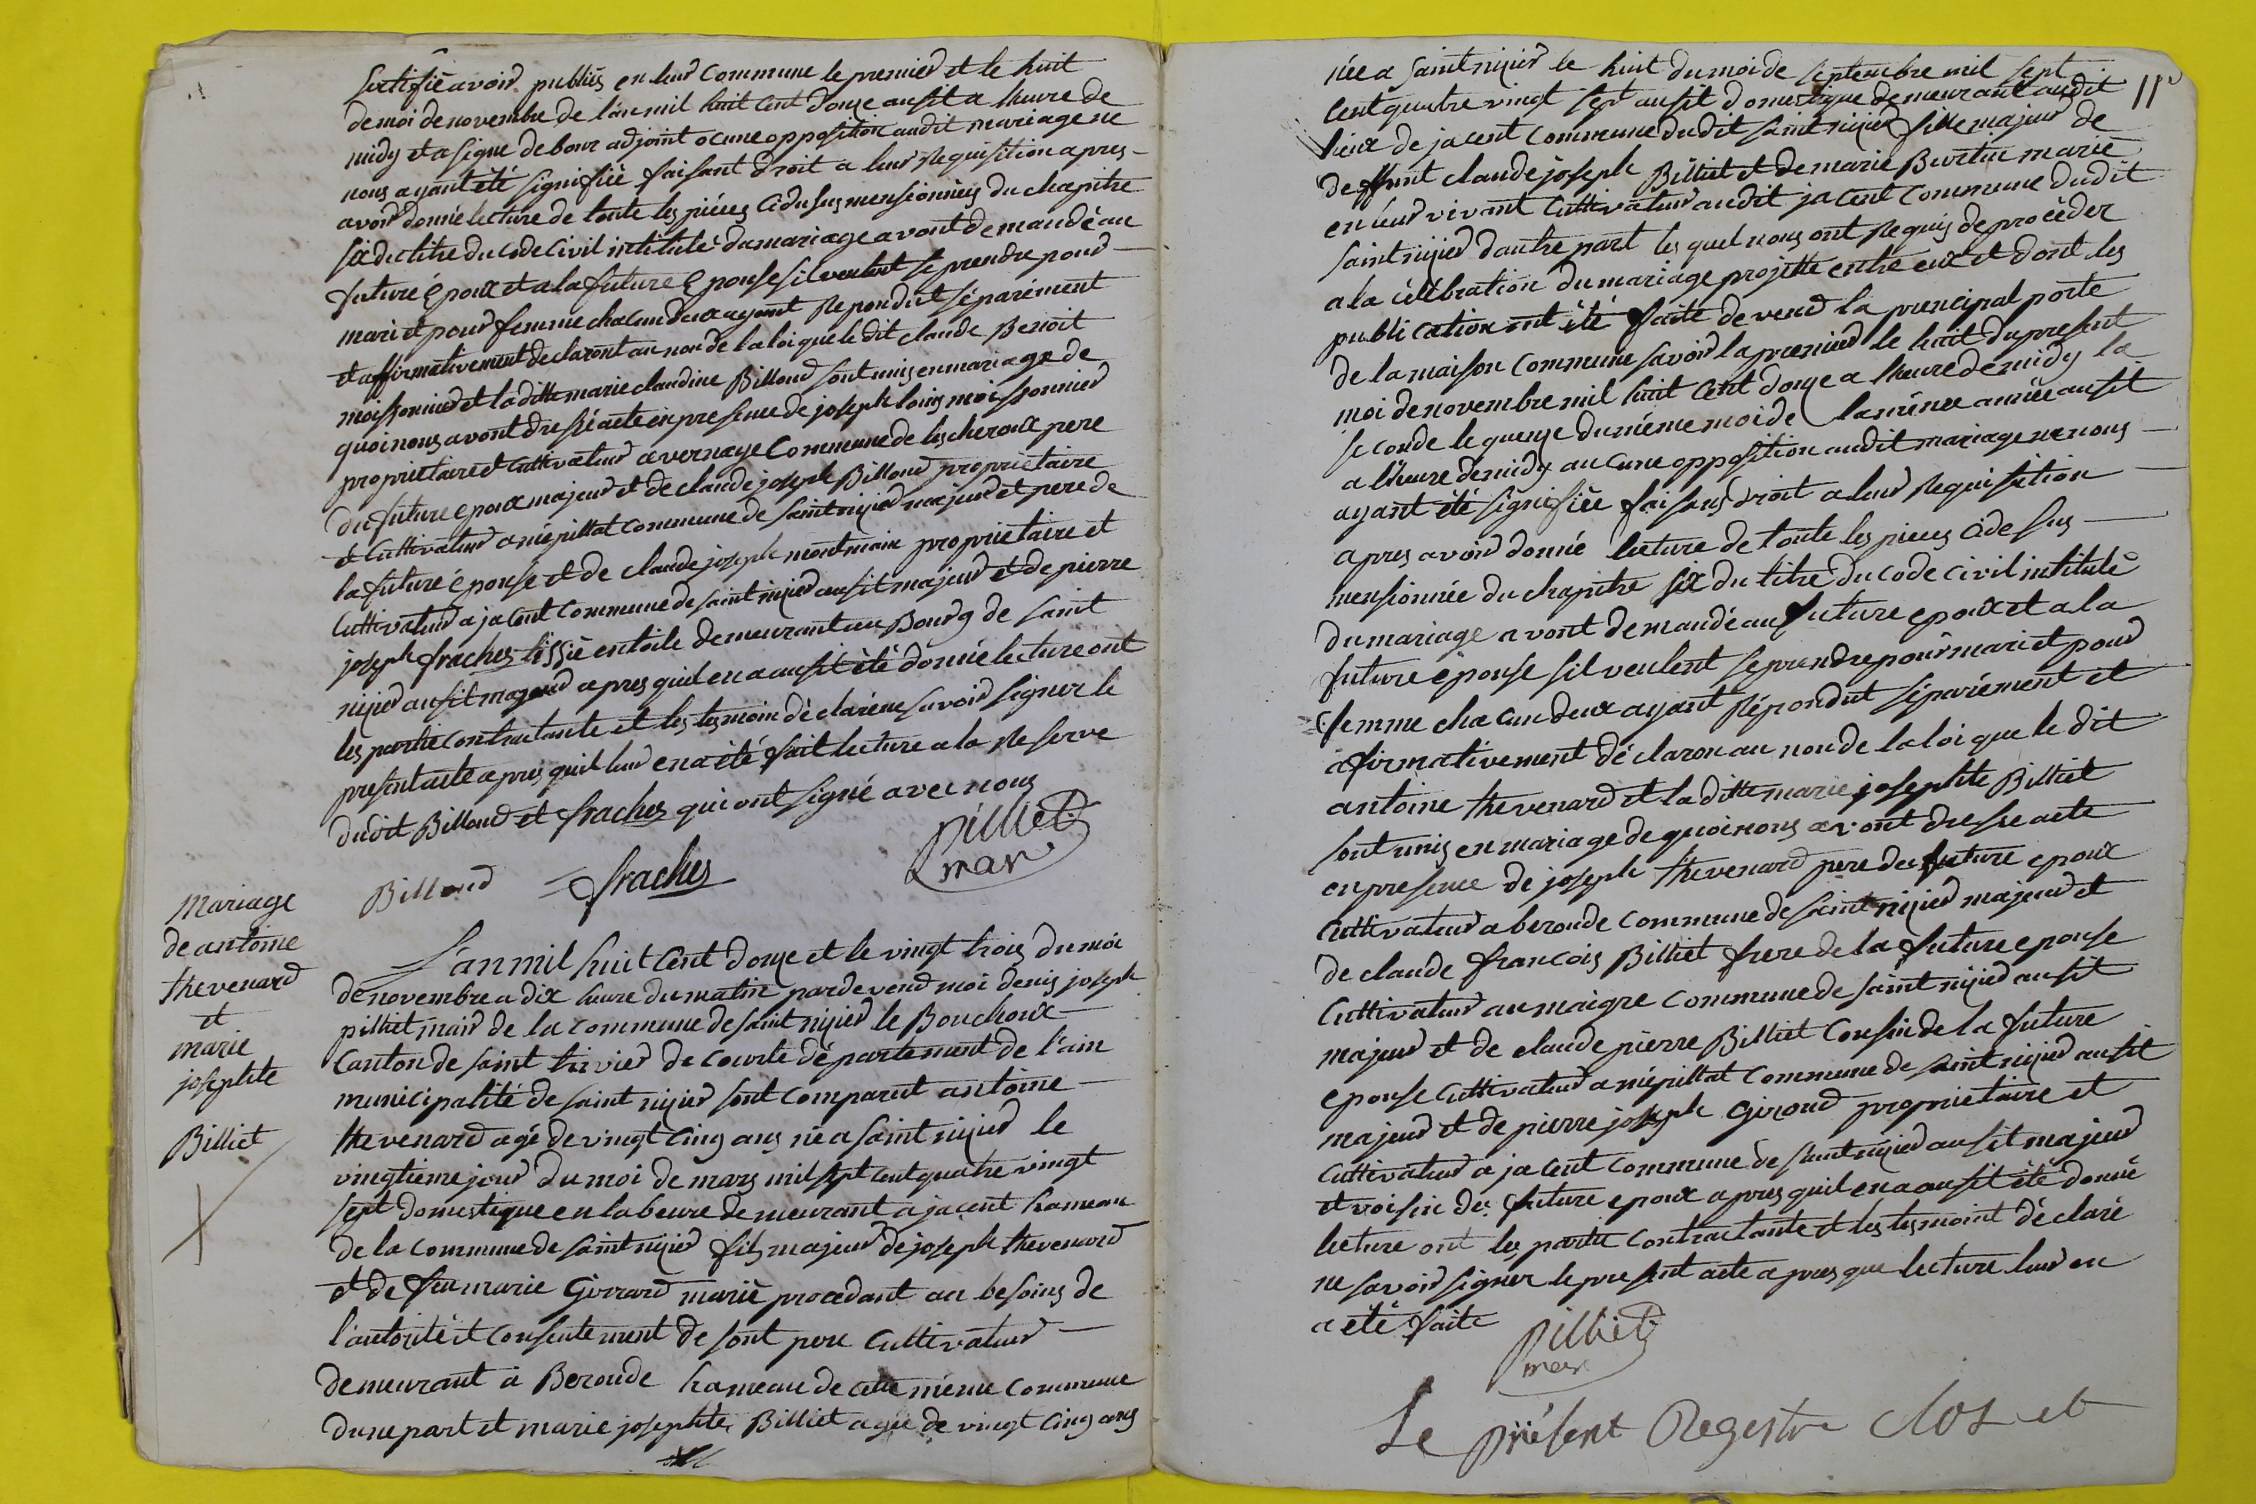 Sertifié avoir publiés en leur commune le premier et le huit
de moi de novembre de l'an mil huit cent douze ausit a lheure de
midy et a signe debour adjoint ocune opposition audit mariage ne
nous ayant été signifiée faisant droit a leur Requisition apres
avoir donné lecture de toute les piéces cidusus mensionnées du chapitre
six du titre du code civil intitulé du mariage avont demandé au
future époux et a la future Epouse sil veulent se prendre pour
mari et pour femme chacun deux ayant Repondut séparément
et affirmativement declaront au non de la loi que le dit claude Benoit
moissonnier et la ditte marie claudine Billoud sont unis en mariage de
quoi nous avont dressé acte en presence de joseph louis moissonnier
proprietaire et cultivateur a vernaye Commune de lescheroux pere
du future epoux majeur et de claude joseph Billoud proprietaire
et Cultivateur a népillat commune de saint nizier majeur et pere de
la future épouse et de claude joseph montmain proprietaire et
Cultivateur a jacent commune de saint nizier ausit majeur et de pierre
joseph frachez tissié en toile demeurant au Bourg de saint
nizier ausit majeur apres quil en a ausit été donnée lecture ont
les partie contractante et les tesmoin déclaré ne savoir signer le
present acte apres quil leur en a été fait lecture a la Reserve
dudit Billoud et frachez qui ont signé avec nous
Pilliet
mar
Billoud frachez
mariage
de antoine
thevenard
et
marie
josephte
Billiet
L'an mil huit cent douze et le vingt trois du moi
de novembre a dix heure du matin pardevend moi denis joseph
pilliet mair de la commune de saint nizier le Bouchoux
canton de saint trivier de courte département de l'ain
municipalité de saint nizier sont comparent antoine
thevenard agé de vingt cinq ans né a saint nizier le
vingtieme jour du moi de mars mil sept cent quatre vingt
sept domestique en labeure demeurant a jacent hameau
de la commune de saint nizier fils majeur de joseph thevenard
et de feu marie Girrard marié procedant au besoins de
l'autorité et consentement de sont pere cultivateur
demeurant a Beroude hameau de cette même commune
dune part et marie josephte Billiet agée de vingt cinq ans
née a saint nizier le huit du moi de septembre mil sept
cent quatre vingt sept ausit domestique demeurant audit
lieux de jacent commune dudit saint nizier fille majeur de
deffunt claude joseph Billiet et de marie Burtin marié
en leur vivant Cultivateur audit jacent commune dudit
saint nizier dautre part les quel nous ont Requis de procèder
a la célébration du mariage projetté entre eux et dont les
publication ont été faite devend la prencipal porte
de la maison commune savoir la premier le huit du present
moi de novembre mil huit cent douze a lheure de midy la
seconde le quenze du même moi de la même année ausit
a l'heure de midy aucune opposition audit mariage ne nous
ayant été signifiée faisans droit a leur Requisition
apres avoir donné lecture de toute les pieces cidesus
mensionnée du chapitre six du titre du code civil intitulé
du mariage avont demandé au future epoux et a la
future epouse sil veulent se prendre pour mari et pour
femme chacun deux ayant Répondut séparément et
afirmativement déclaron au non de la loi que le dit
antoine thevenard et la ditte marie josephte Billiet
sont unis en mariage de quoi nous avont dresse acte
en presence de joseph thevenard pere du future epoux
cultivateur a beroude commune de saint nizier majeur et
de claude francois Billiet frere de la future epouse
Cultivateur au maigre commune de saint nizier ausit
majeur et de claude pierre Billiet Cousin de la future
epouse cultivateur a népillat commune de saint nizier ausit
majeur et de pierre joseph Giroud proprietaire et
cultivateur a jacent commune de saint nizier ausit majeur
et voisin de future epoux apres quil en a ausit été donné
lecture ont les partie contractante et les tesmoint déclaré
ne savoir signer le present acte apres que lecture leur en
a été faite
Pilliet
mar
Le présent Regestre clos et